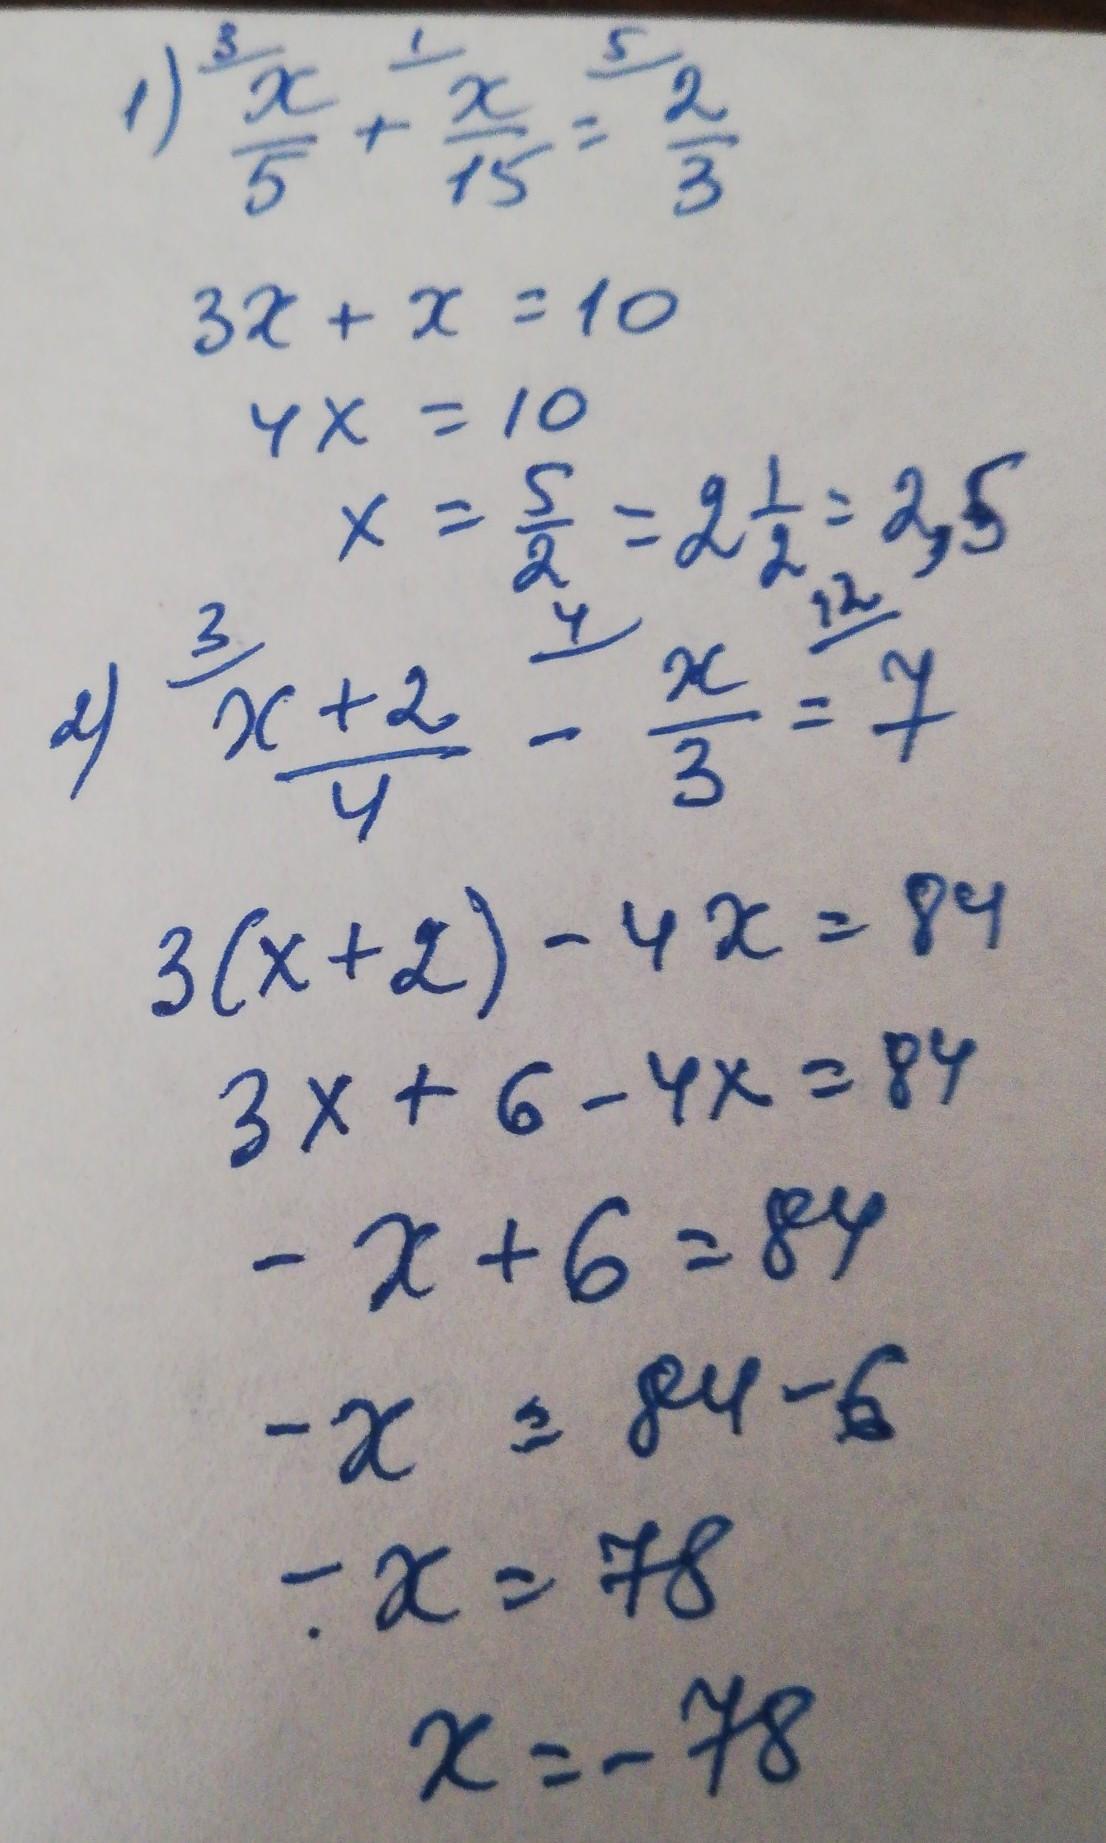 1) ³⁄ x/5 + ¹⁄ x/15 = ⁵⁄ 2/3
3x + x = 10
4x = 10
x = 5/2 = 2 1/2 = 2,5
2) ³⁄ x+2/4 - ⁴⁄ x/3 = ¹²⁄ 7
3(x+2) - 4x = 84
3x + 6 - 4x = 84
- x + 6 = 84
- x = 84 - 6
- x = 78
x = - 78